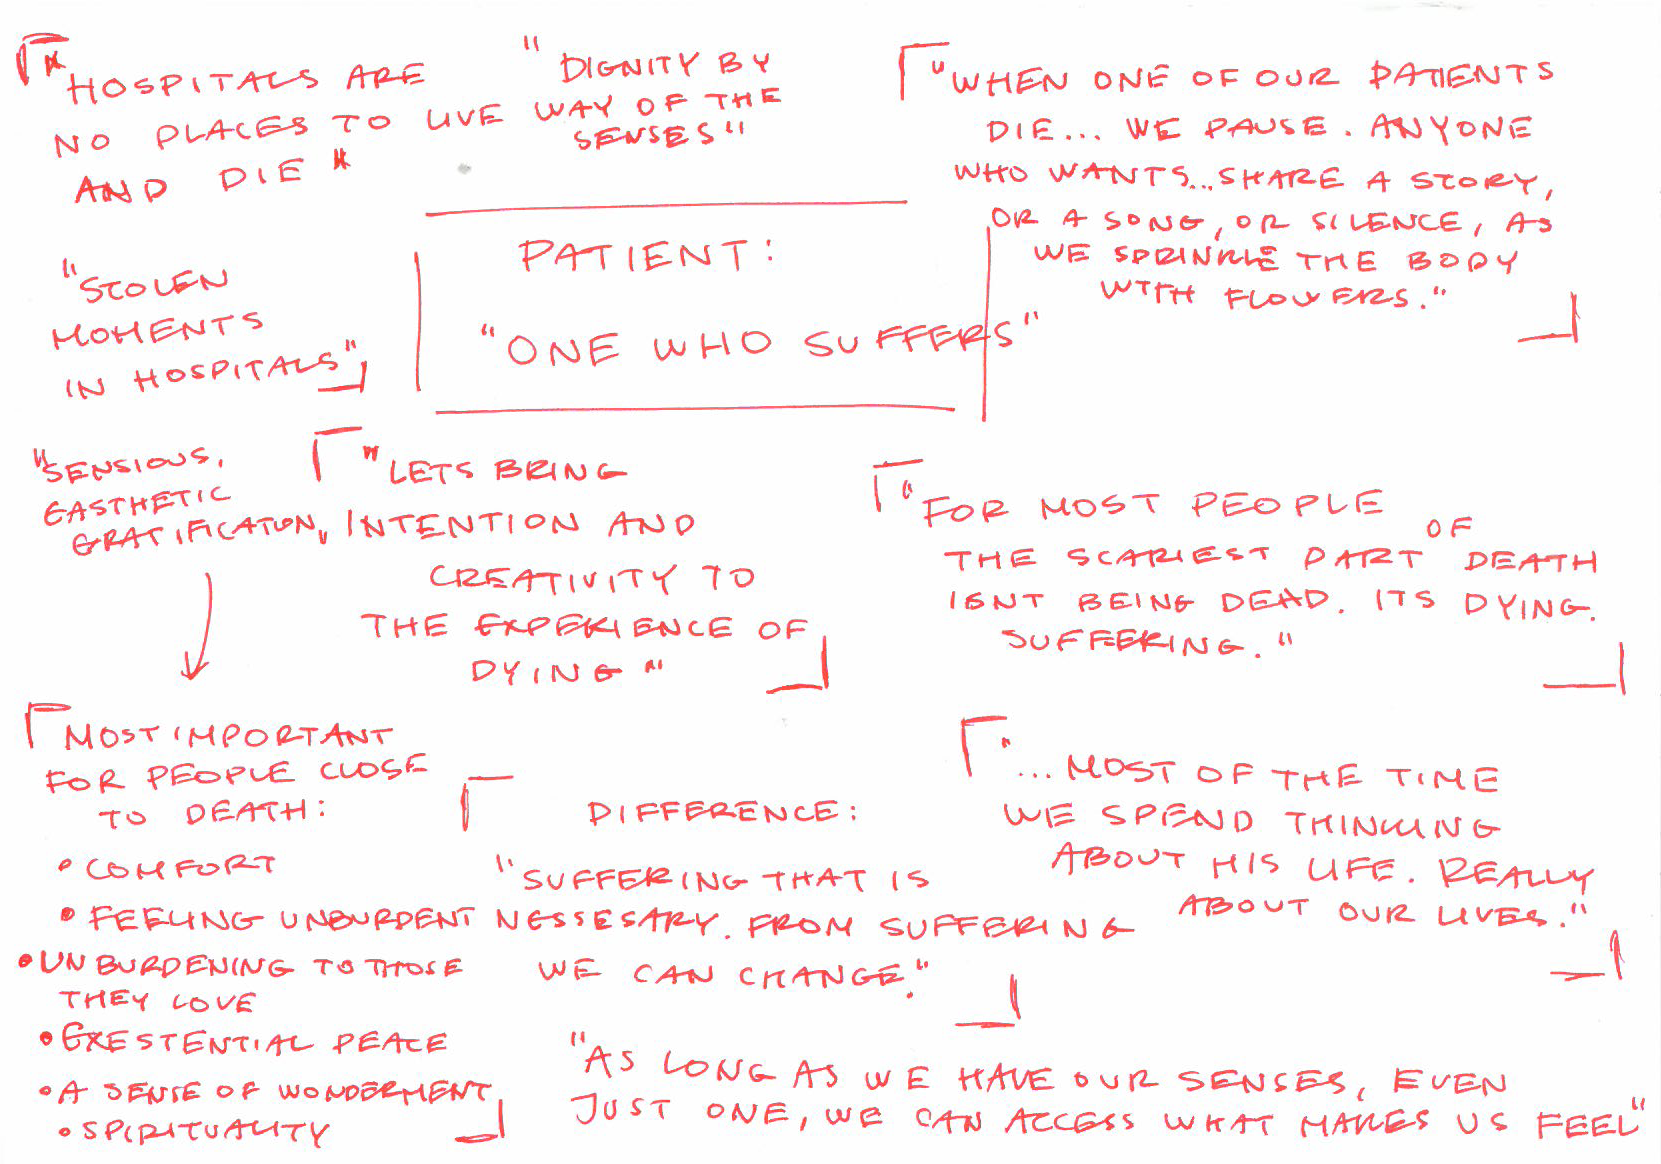 "HOSPITALS ARE
NO PLACES TO LIVE
AND DIE"
"DIGNITY BY
WAY OF THE
SENSES"
"WHEN ONE OF OUR PATIENTS
DIE... WE PAUSE. ANYONE
WHO WANTS...SHARE A STORY,
OR A SONG, OR SILENCE, AS
WE SPRINKLE THE BODY
WITH FLOWERS."
"STOLEN
MOMENTS
IN HOSPITALS"
PATIENT:
"ONE WHO SUFFERS"
"SENSIOUS,
EASTHETIC
GRATIFICATION"
"LETS BRING
INTENTION AND
CREATIVITY TO
THE EXPERIENCE OF
DYING"
"FOR MOST PEOPLE
THE SCARIEST PART OF DEATH
ISNT BEING DEAD. ITS DYING.
SUFFERING."
MOST IMPORTANT
FOR PEOPLE CLOSE
TO DEATH:
• COMFORT
• FEELING UNBURDENT
• UNBURDENING TO THOSE
THEY LOVE
• EXESTENTIAL PEACE
• A SENSE OF WONDERMENT
• SPIRITUALITY
DIFFERENCE:
"SUFFERING THAT IS
NESSESARY. FROM SUFFERING
WE CAN CHANGE."
"...MOST OF THE TIME
WE SPEND THINKING
ABOUT HIS LIFE. REALLY
ABOUT OUR LIVES."
"AS LONG AS WE HAVE OUR SENSES, EVEN
JUST ONE, WE CAN ACCESS WHAT MAKES US FEEL"